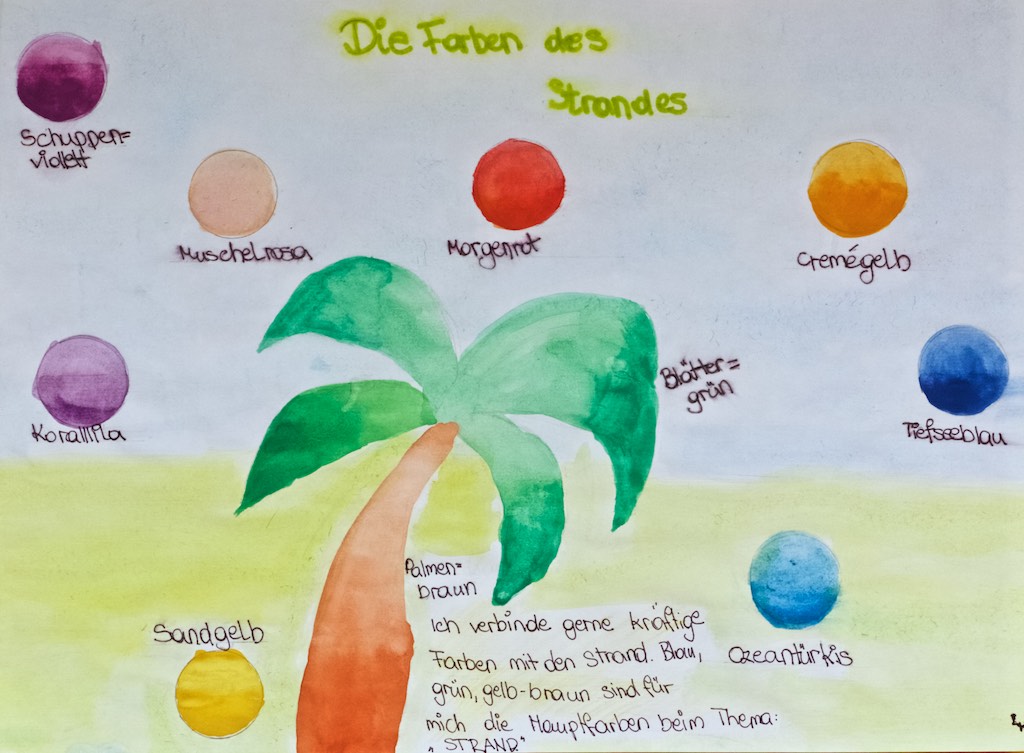 Die Farben des
Strandes
Schuppen=
violett
Muschelrosa
Morgenrot
Cremégelb
Blätter=
grün
Korallila
Tiefseeblau
Palmen=
braun
Sandgelb
Ozeantürkis
Ich verbinde gerne kräftige
Farben mit den Strand. Blau,
grün, gelb-braun sind für
mich die Haupffarben beim Thema:
"STRAND"